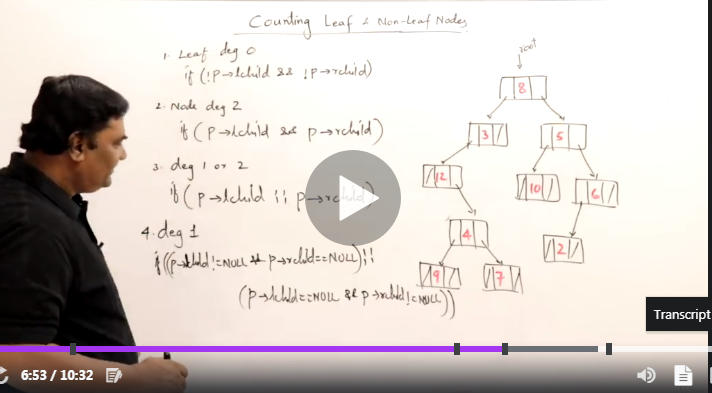 Counting Leaf & Non-Leaf Nodes
1. Leaf deg 0
if (!p→lchild && !p→rchild)
2. Node deg 2
if (p→lchild && p→rchild)
3. deg 1 or 2
if (p→lchild || p→rchild)
4. deg 1
if ((p→lchild!=NULL && p→rchild==NULL)||
(p→lchild==NULL && p→rchild!=NULL))
root
8
3
5
12
10
6
4
2
9
7
Transcript
6:53 / 10:32